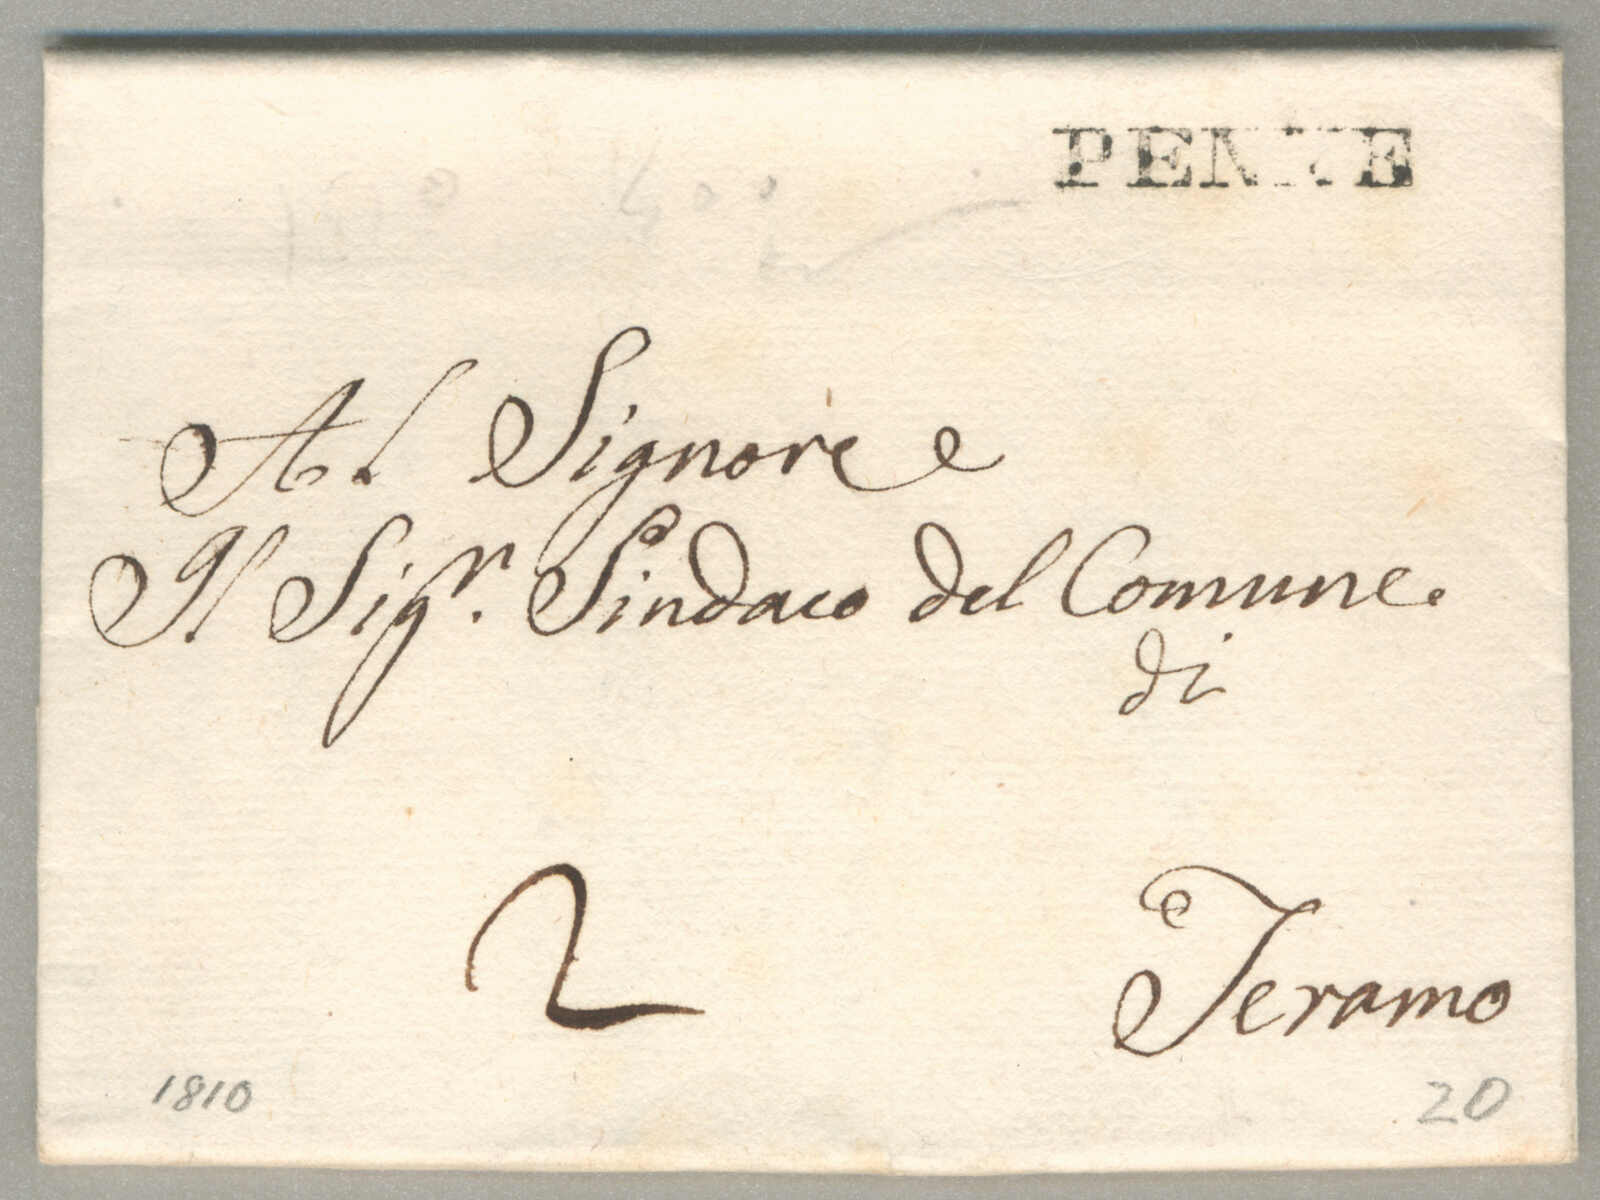 PENNE
Al Signore e
Il Sigr. Sindaco del Comune.
di
2
Teramo
1810
20